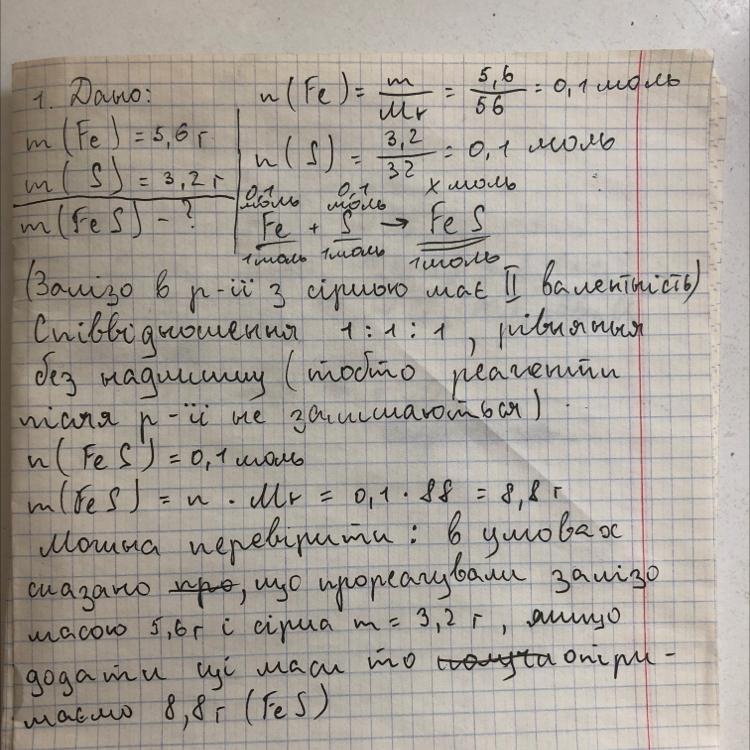 1. Дано: n(Fe) = m/Mr = 5,6/56 = 0,1 моль
m(Fe) = 5,6 г
m(S) = 3,2 г
m(FeS) - ?
n(S) = 3,2/32 = 0,1 моль
0,1 моль 0,1 моль x моль
Fe + S → FeS
1 моль 1 моль 1 моль
(Залізо в р-ії з сіркою має II валентність)
Співвідношення 1 : 1 : 1, рівняння
без надлишку (тобто реагенти
після р-ії не залишаються).
n(FeS) = 0,1 моль
m(FeS) = n · Mr = 0,1 · 88 = 8,8 г
Можна перевірити: в умовах
сказано про, що прореагували залізо
масою 5,6 г і сірка m = 3,2 г, якщо
додати ці маси то отри-
маємо 8,8 г (FeS)